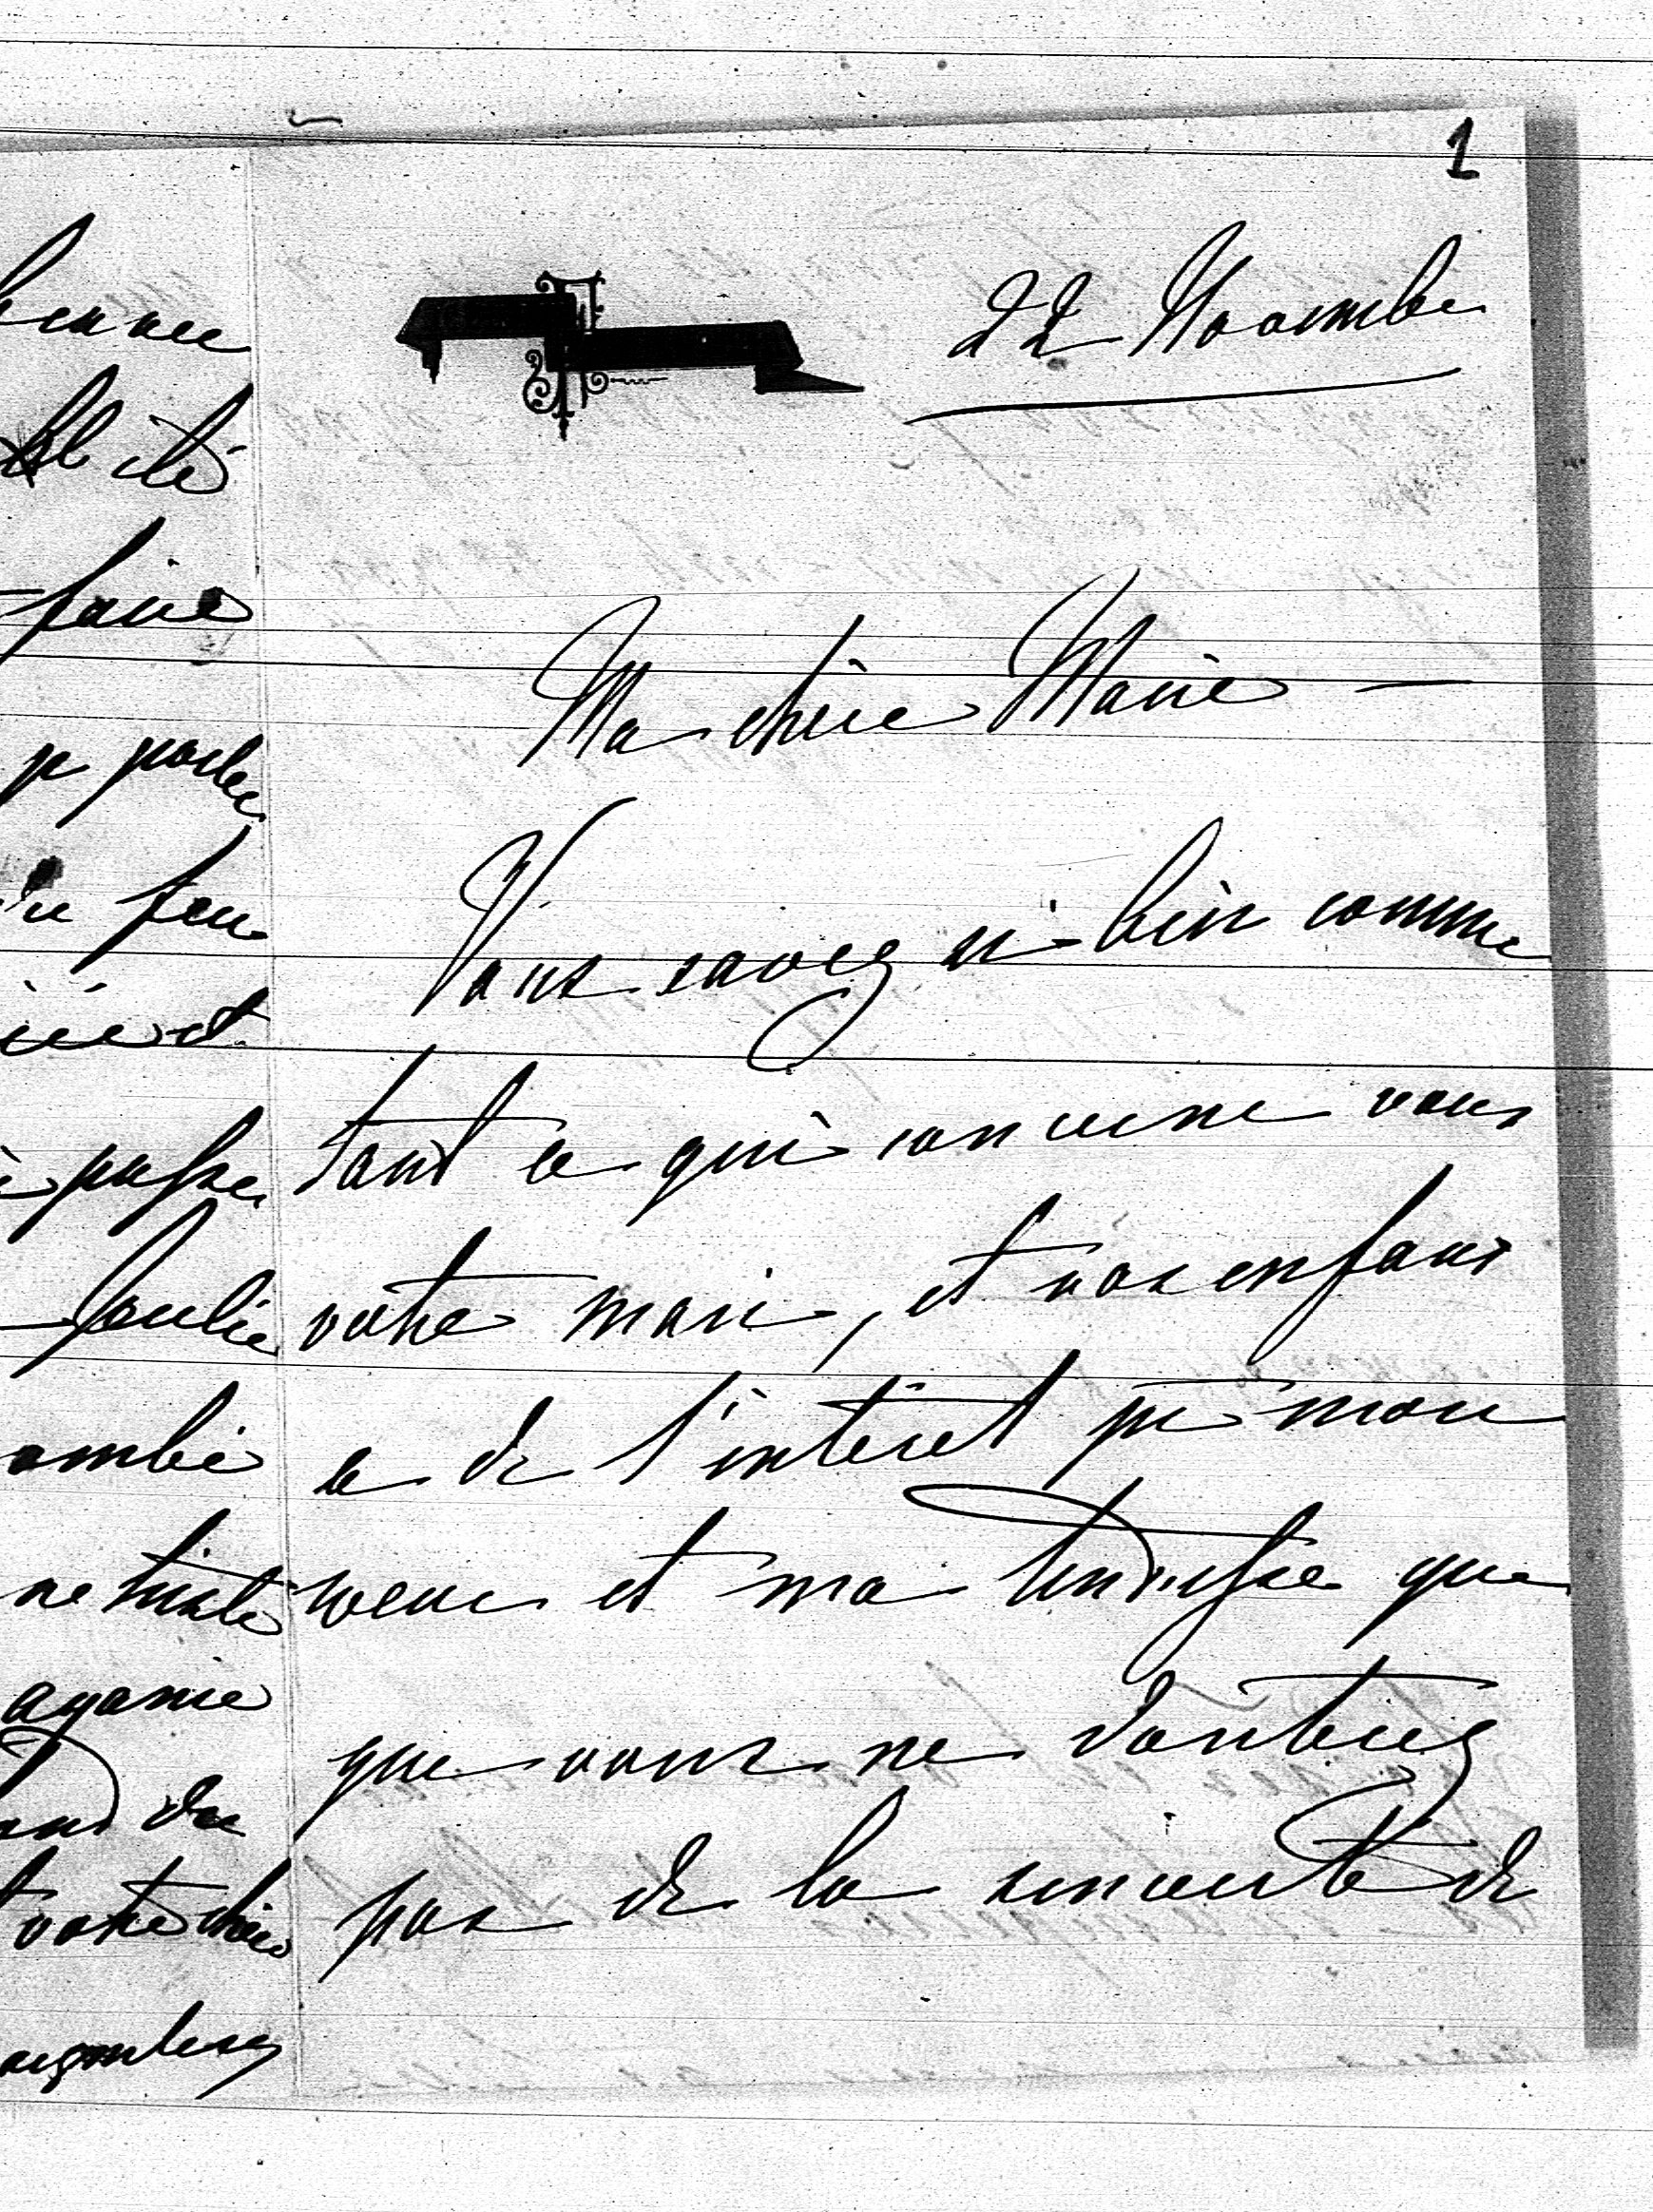 1
22 Novembre
Ma chère Marie —
Vous savez si bien comme
tout ce qui concerne vous
votre mari, et vos enfans
a de l'intéret pr mon
coeur et ma tendresse que
que vous ne doutiez
pas de la sincerité de
faire
je parler
feu
passer
ombie
ne triste
agonie
du
votre chère